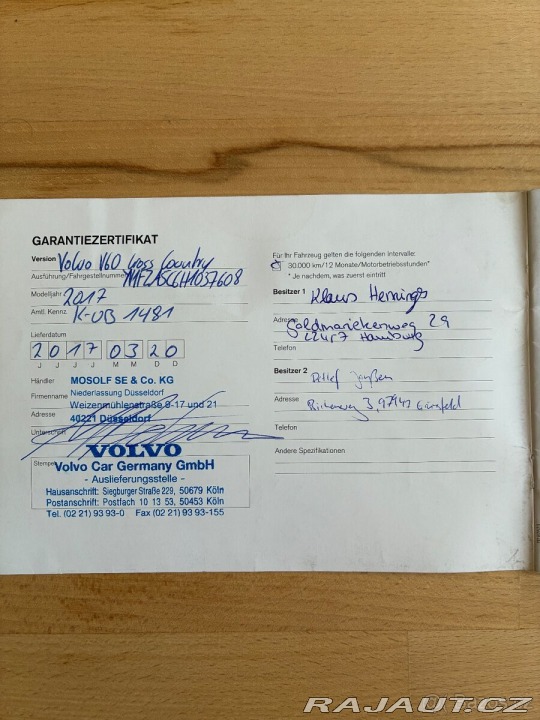 GARANTIEZERTIFIKAT
Version Volvo V60 Cross Country
Ausführung/Fahrgestellnummer
Modelljahr 2017
Amtl. Kennz. K-UB 1481
Lieferdatum
2 0 1 7 0 3 2 0
J J J J M M D D
Händler MOSOLF SE & Co. KG
Firmenname Niederlassung Düsseldorf
Weizenmühlenstraße 8-17 und 21
Adresse 40221 Düsseldorf
Unterschrift
VOLVO
Stempel
Volvo Car Germany GmbH
- Auslieferungsstelle -
Hausanschrift: Siegburger Straße 229, 50679 Köln
Postanschrift: Postfach 10 13 53, 50453 Köln
Tel. (02 21) 93 93-0 Fax (02 21) 93 93-155
Für Ihr Fahrzeug gelten die folgenden Intervalle:
30.000 km/12 Monate/Motorbetriebsstunden*
* Je nachdem, was zuerst eintritt
Besitzer 1 Klaus Hennings
Adresse Goldmariekenweg 29
22457 Hamburg
Telefon
Besitzer 2 Detlef
Adresse 3, 97947 Grünsfeld
Telefon
Andere Spezifikationen
RAJAUT.CZ